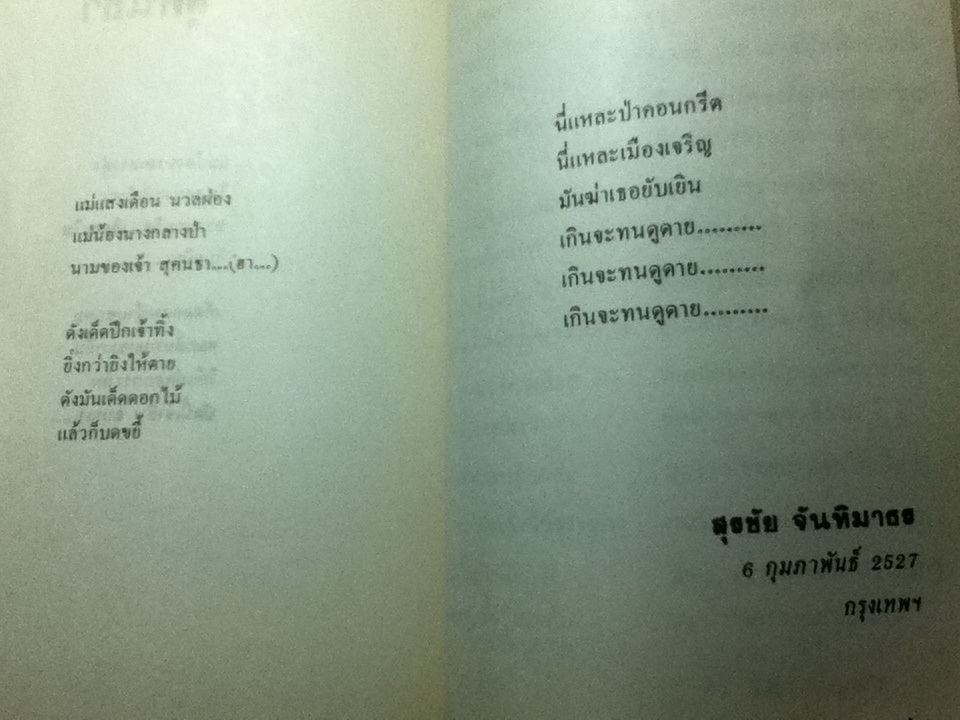 แม่แสงเดือน นวลผ่อง
แม่น้องนางกลางป่า
นามของเจ้า สุคนธา....(ฮา...)
ดังเด็ดปีกเจ้าทิ้ง
ยิ่งกว่ายิงให้ตาย
ดังมันเด็ดดอกไม้
แล้วก็บดขยี้
นี่แหละป่าคอนกรีต
นี่แหละเมืองเจริญ
มันฆ่าเธอยับเยิน
เกินจะทนดูดาย.........
เกินจะทนดูดาย.........
เกินจะทนดูดาย.........
สุรชัย จันทิมาธร
6 กุมภาพันธ์ 2527
กรุงเทพฯ